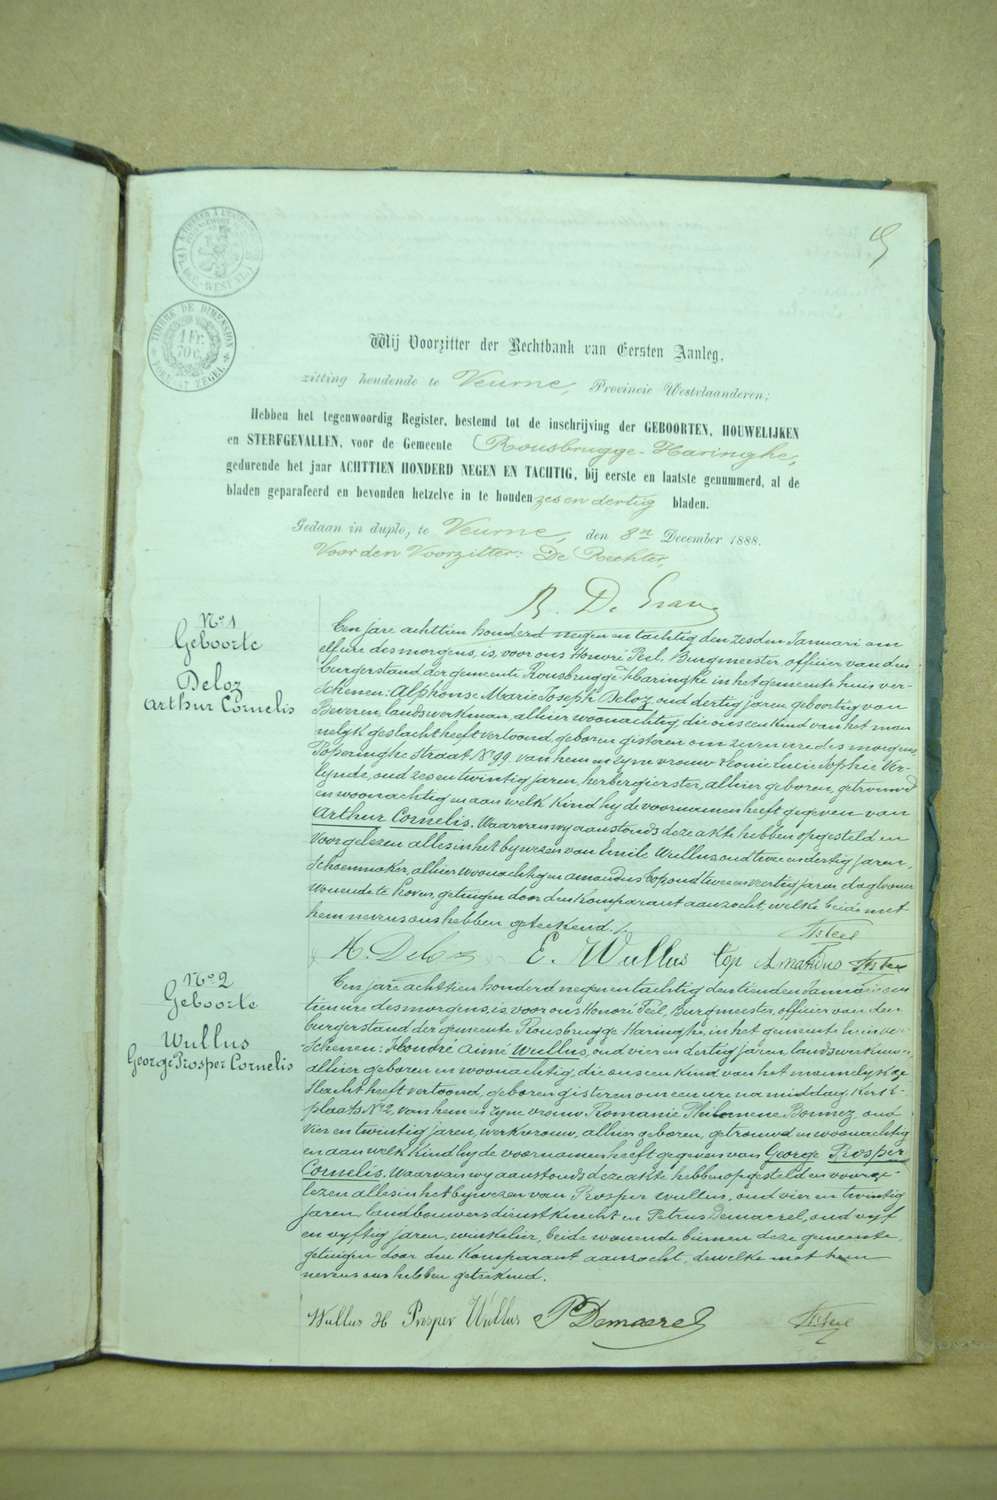 TIMBRE DE DIMENSION
1 Fr. 70 C.
FORMAAT ZEGEL
Wij Voorzitter der Rechtbank van Eersten Aanleg,
zitting houdende te Veurne, Provincie Westvlaanderen;
Hebben het tegenwoordig Register, bestemd tot de inschrijving der GEBOORTEN, HOUWELIJKEN
en STERFGEVALLEN, voor de Gemeente Rousbrugge-Haringhe,
gedurende het jaar ACHTTIEN HONDERD NEGEN EN TACHTIG, bij eerste en laatste genummerd, al de
bladen geparafeerd en bevonden hetzelve in te houden zes en dertig bladen.
Gedaan in duplo, te Veurne, den 8n December 1888.
Voor den Voorzitter: De Rechter,
N° 1
Geboorte
Deloz
Arthur Cornelis
Een jare achttien honderd negen en tachtig den zesden Januari om
elf ure des morgens, is, voor ons Honoré Peel, Burgmeester, officier van den
burgerstand der gemeente Rousbrugge-Haringhe in het gemeente huis ver-
schenen: Alphonse Marie Joseph Deloz, oud dertig jaren geboortig van
Beveren, landswerkman, alhier woonachtig die ons een kind van het man
nelyk geslacht heeft vertoond, geboren gisteren om zeven ure des morgens,
Poperinghe Straat N° 99, van hem en zyne vrouw Leonie Lucie Sophie Ver-
lynde, oud zes en twintig jaren, herbergierster, alhier geboren, getrouwd
en woonachtig en aan welk kind hy de voornamen heeft gegeven van
Arthur Cornelis. Waarvan wy aanstonds deze akte hebben opgesteld en
voorgelezen alles in het bywezen van Emile Wullus, oud twee en dertig jaren,
schoenmaker, alhier woonachtig en Amandus Top, oud twee en veertig jaren, daglooner
wonende te Hoven, getuigen door den komparant aanzocht, welke beide met
hem nevens ons hebben geteekend.
A. Deloz E. Wullus Top Amandus
N° 2
Geboorte
Wullus
George Prosper Cornelis
Een jare achttien honderd negen en tachtig den tienden Januari om
tien ure des morgens, is, voor ons Honoré Peel, Burgmeester, officier van den
burgerstand der gemeente Rousbrugge Haringhe, in het gemeente huis ver-
schenen: Honoré Aimé Wullus, oud vier en dertig jaren, landswerkman,
alhier geboren en woonachtig, die ons een kind van het mannelyk ge
slacht heeft vertoond, geboren gisteren om een ure na middag, Kerk
plaats N° 2, van hem en zyne vrouw Romanie Philomene Bonnez, oud
vier en twintig jaren, werkvrouw, alhier geboren, getrouwd en woonachtig
en aan welk kind hy de voornamen heeft gegeven van George Prosper
Cornelis. Waarvan wy aanstonds deze akte hebben opgesteld en voorge-
lezen alles in het bywezen van Prosper Wullus, oud vier en twintig
jaren, landbouwersdienstknecht en Petrus Demaerel, oud vyf
en vyftig jaren, winkelier, beide wonende binnen deze gemeente,
getuigen door den komparant aanzocht, dewelke met hem
nevens ons hebben geteekend.
Wullus H Prosper Wullus P Demaerel